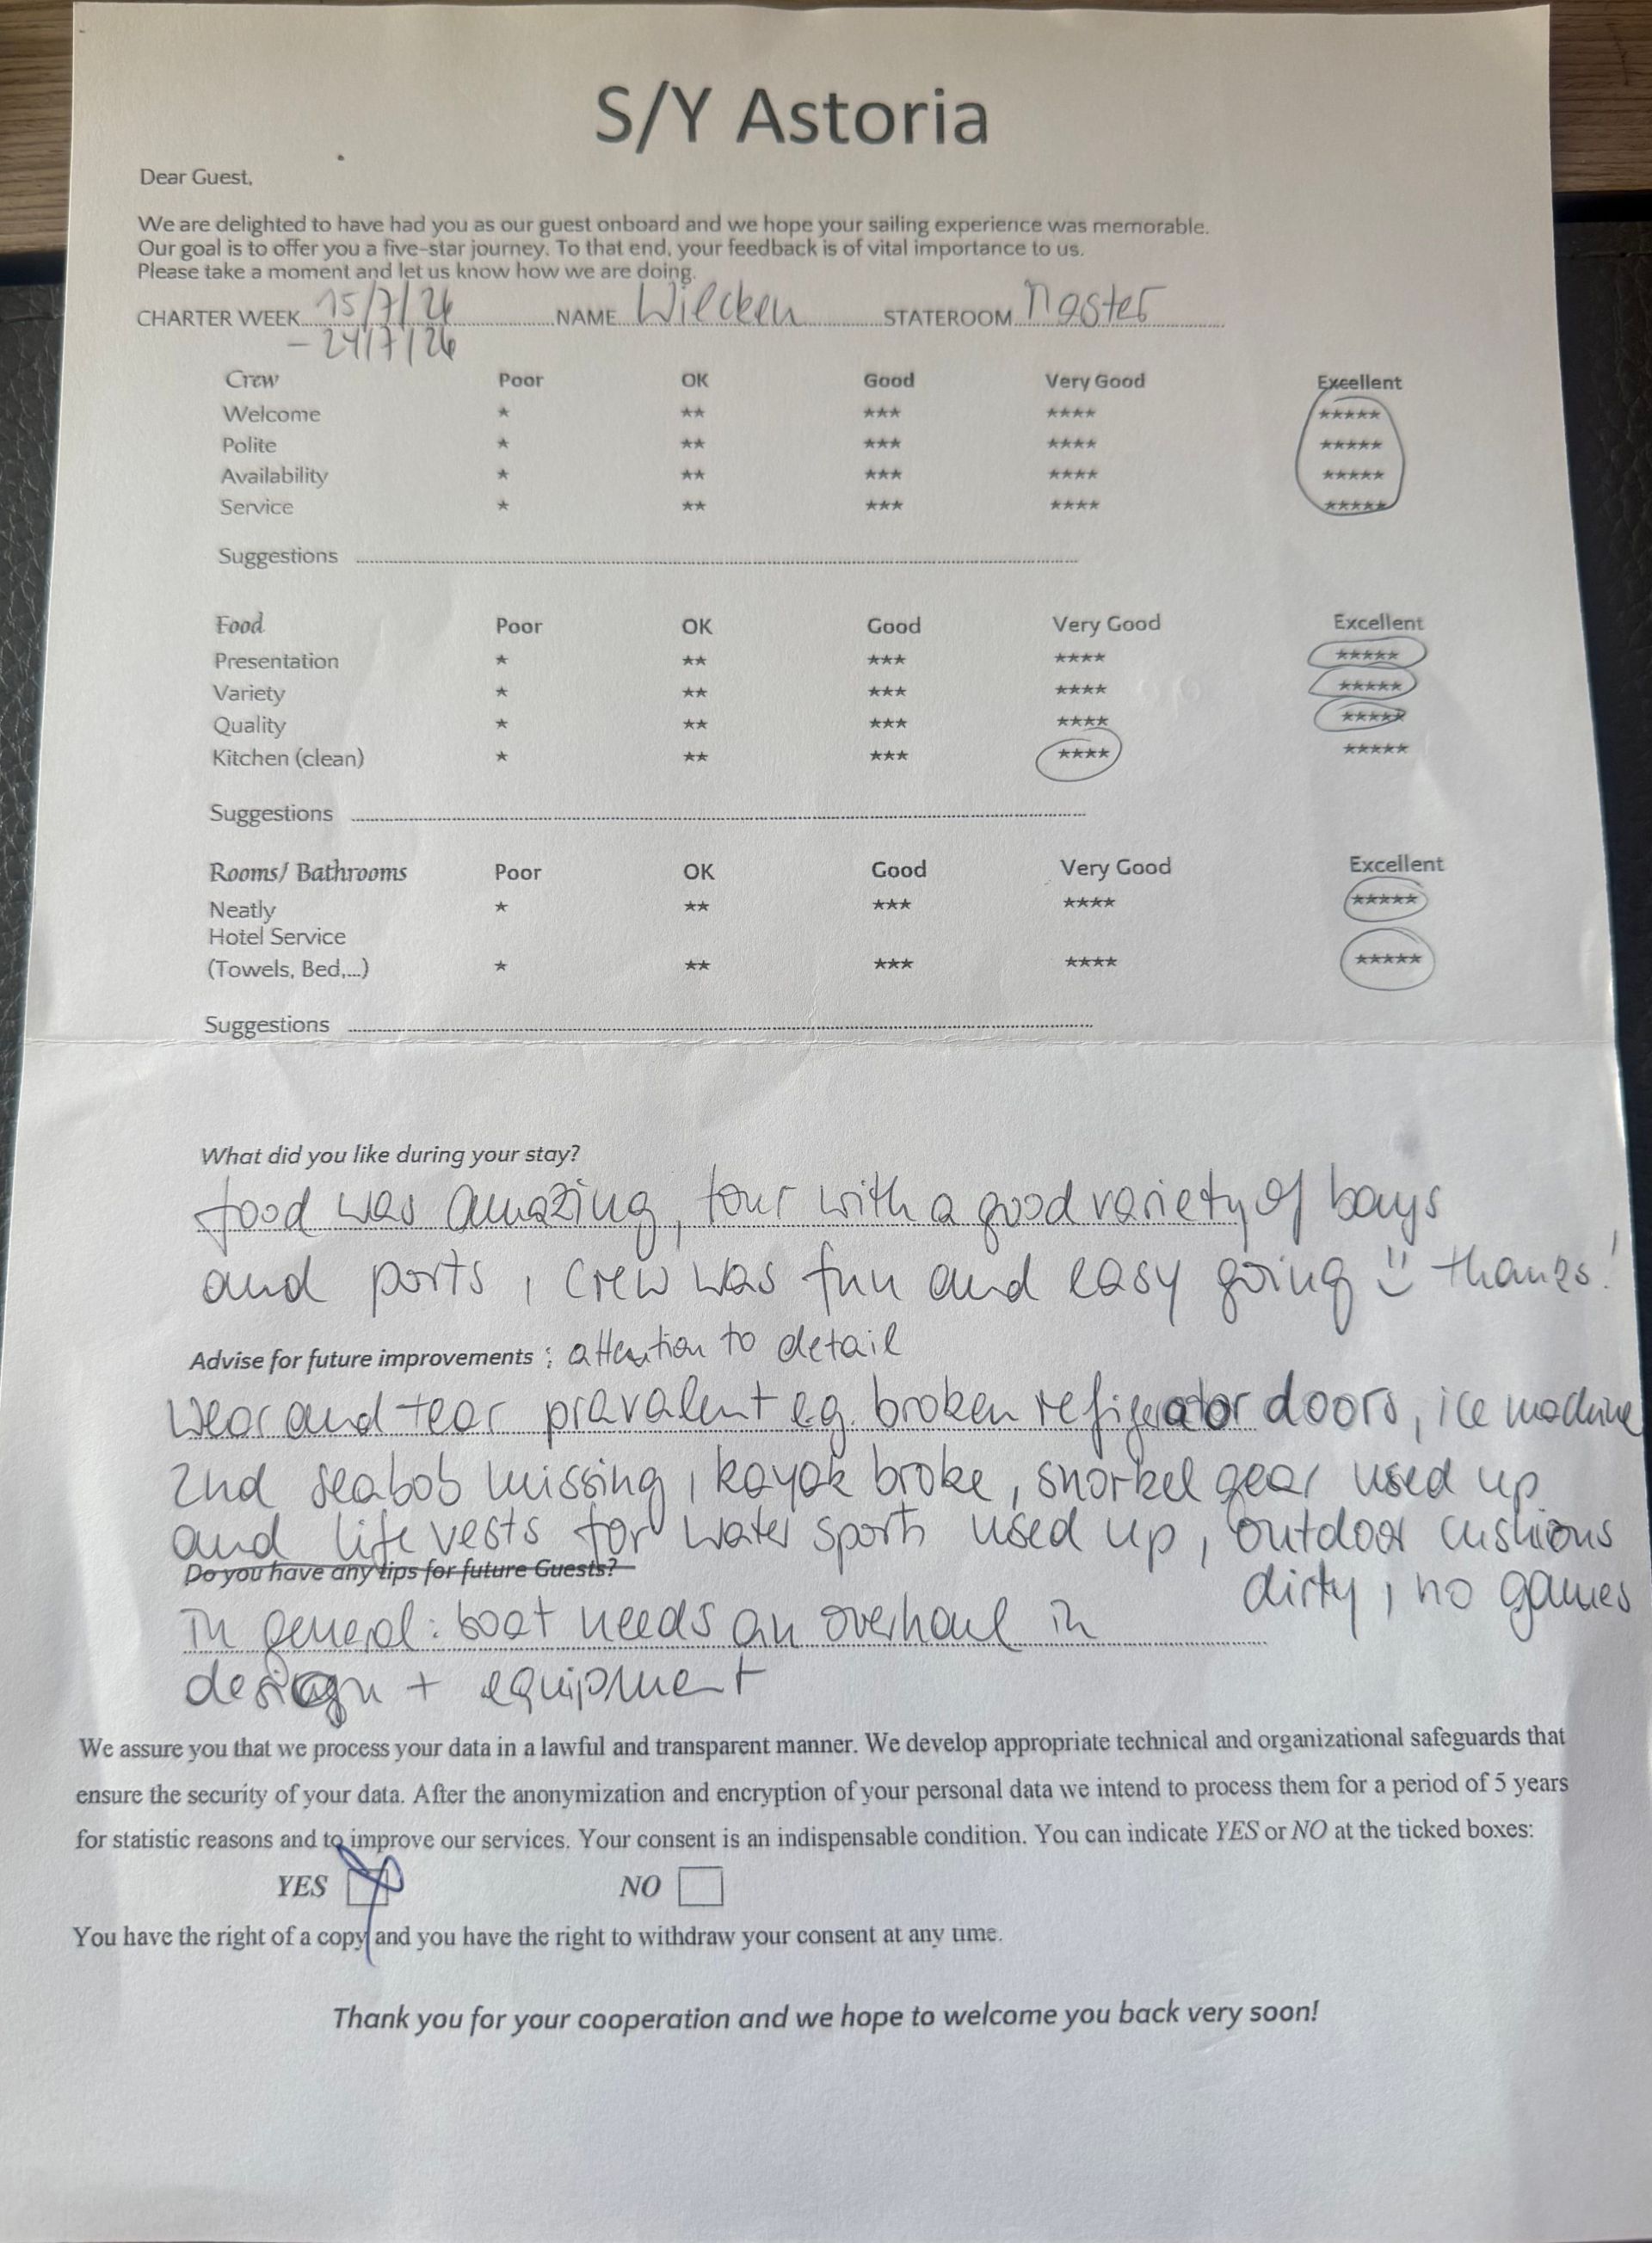 S/Y Astoria
Dear Guest,
We are delighted to have had you as our guest onboard and we hope your sailing experience was memorable.
Our goal is to offer you a five-star journey. To that end, your feedback is of vital importance to us.
Please take a moment and let us know how we are doing.
CHARTER WEEK 15/7/26 NAME Wilcken STATEROOM Master
- 24/7/26
Crew Poor OK Good Very Good Excellent
Welcome * ** *** **** *****
Polite * ** *** **** *****
Availability * ** *** **** *****
Service * ** *** **** *****
Suggestions
Food Poor OK Good Very Good Excellent
Presentation * ** *** **** *****
Variety * ** *** **** *****
Quality * ** *** **** *****
Kitchen (clean) * ** *** **** *****
Suggestions
Rooms/ Bathrooms Poor OK Good Very Good Excellent
Neatly * ** *** **** *****
Hotel Service
(Towels, Bed,...) * ** *** **** *****
Suggestions
What did you like during your stay?
food was amazing, tour with a good variety of bays
and ports, crew was fun and easy going :) thanks!
Advise for future improvements : attention to detail
Wear and tear pravalent e.g. broken refigerator doors, ice machine
2nd seabob missing, kayak broke, snorkel gear used up
and life vests for water sports used up, outdoor cushions
Do you have any tips for future Guests?
dirty, no games
In general: boat needs an overhaul in
design + equipment
We assure you that we process your data in a lawful and transparent manner. We develop appropriate technical and organizational safeguards that
ensure the security of your data. After the anonymization and encryption of your personal data we intend to process them for a period of 5 years
for statistic reasons and to improve our services. Your consent is an indispensable condition. You can indicate YES or NO at the ticked boxes:
YES NO
You have the right of a copy and you have the right to withdraw your consent at any time.
Thank you for your cooperation and we hope to welcome you back very soon!